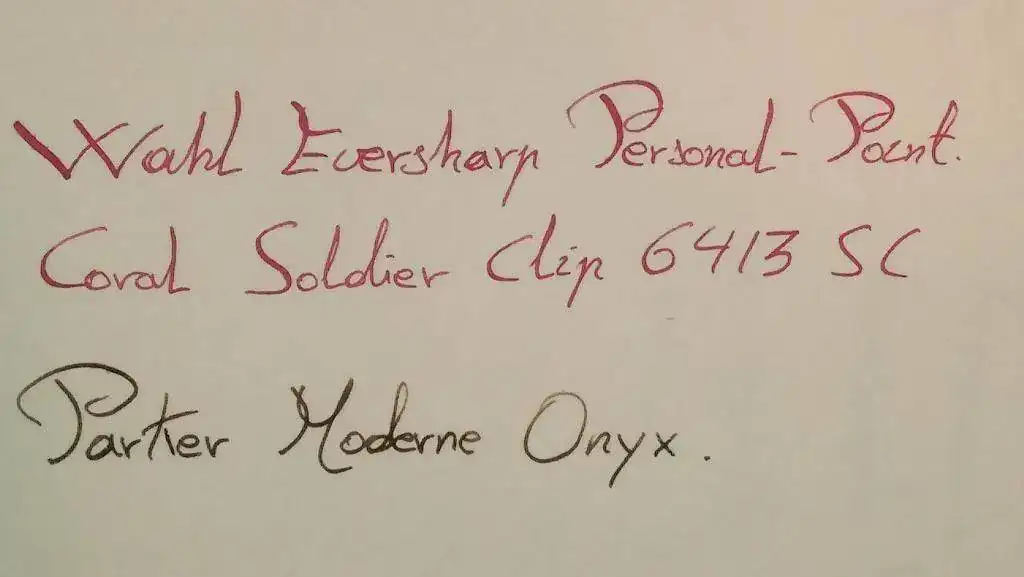 Wahl Eversharp Personal-Point.
Coral Soldier Clip 6413 SC
Parker Moderne Onyx.